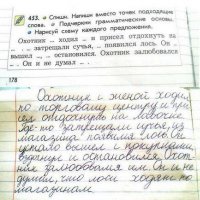 453. Спиши. Напиши вместо точек подходящие
слова. Подчеркни грамматические основы.
Нарисуй схему каждого предложения.
Охотник ... ходил ... и присел отдохнуть на
... . ... затрещали сучья, ... появился лось. Он
вышел ..., ... остановился. Охотник залюбовался
... Он и не думал ... .
178
Охотник с женой ходил
по торговому центру и при
сел отдохнуть на лавочке.
Где-то затрещали сучья, из
магазина появился лось. Он
вышел с покупками
и остановился. Охот
ник залюбовался им. Он и не
думал, что лоси ходят по
магазинам